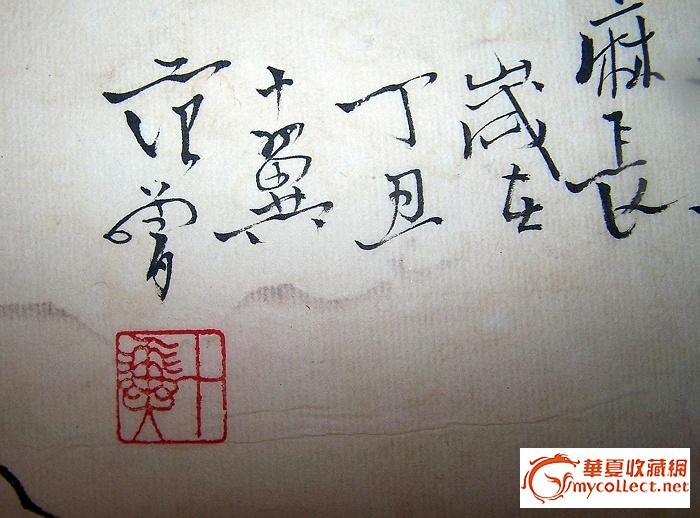 麻下長
歲在
丁丑
十翼
范曾
十翼
華夏收藏網
mycollect.net